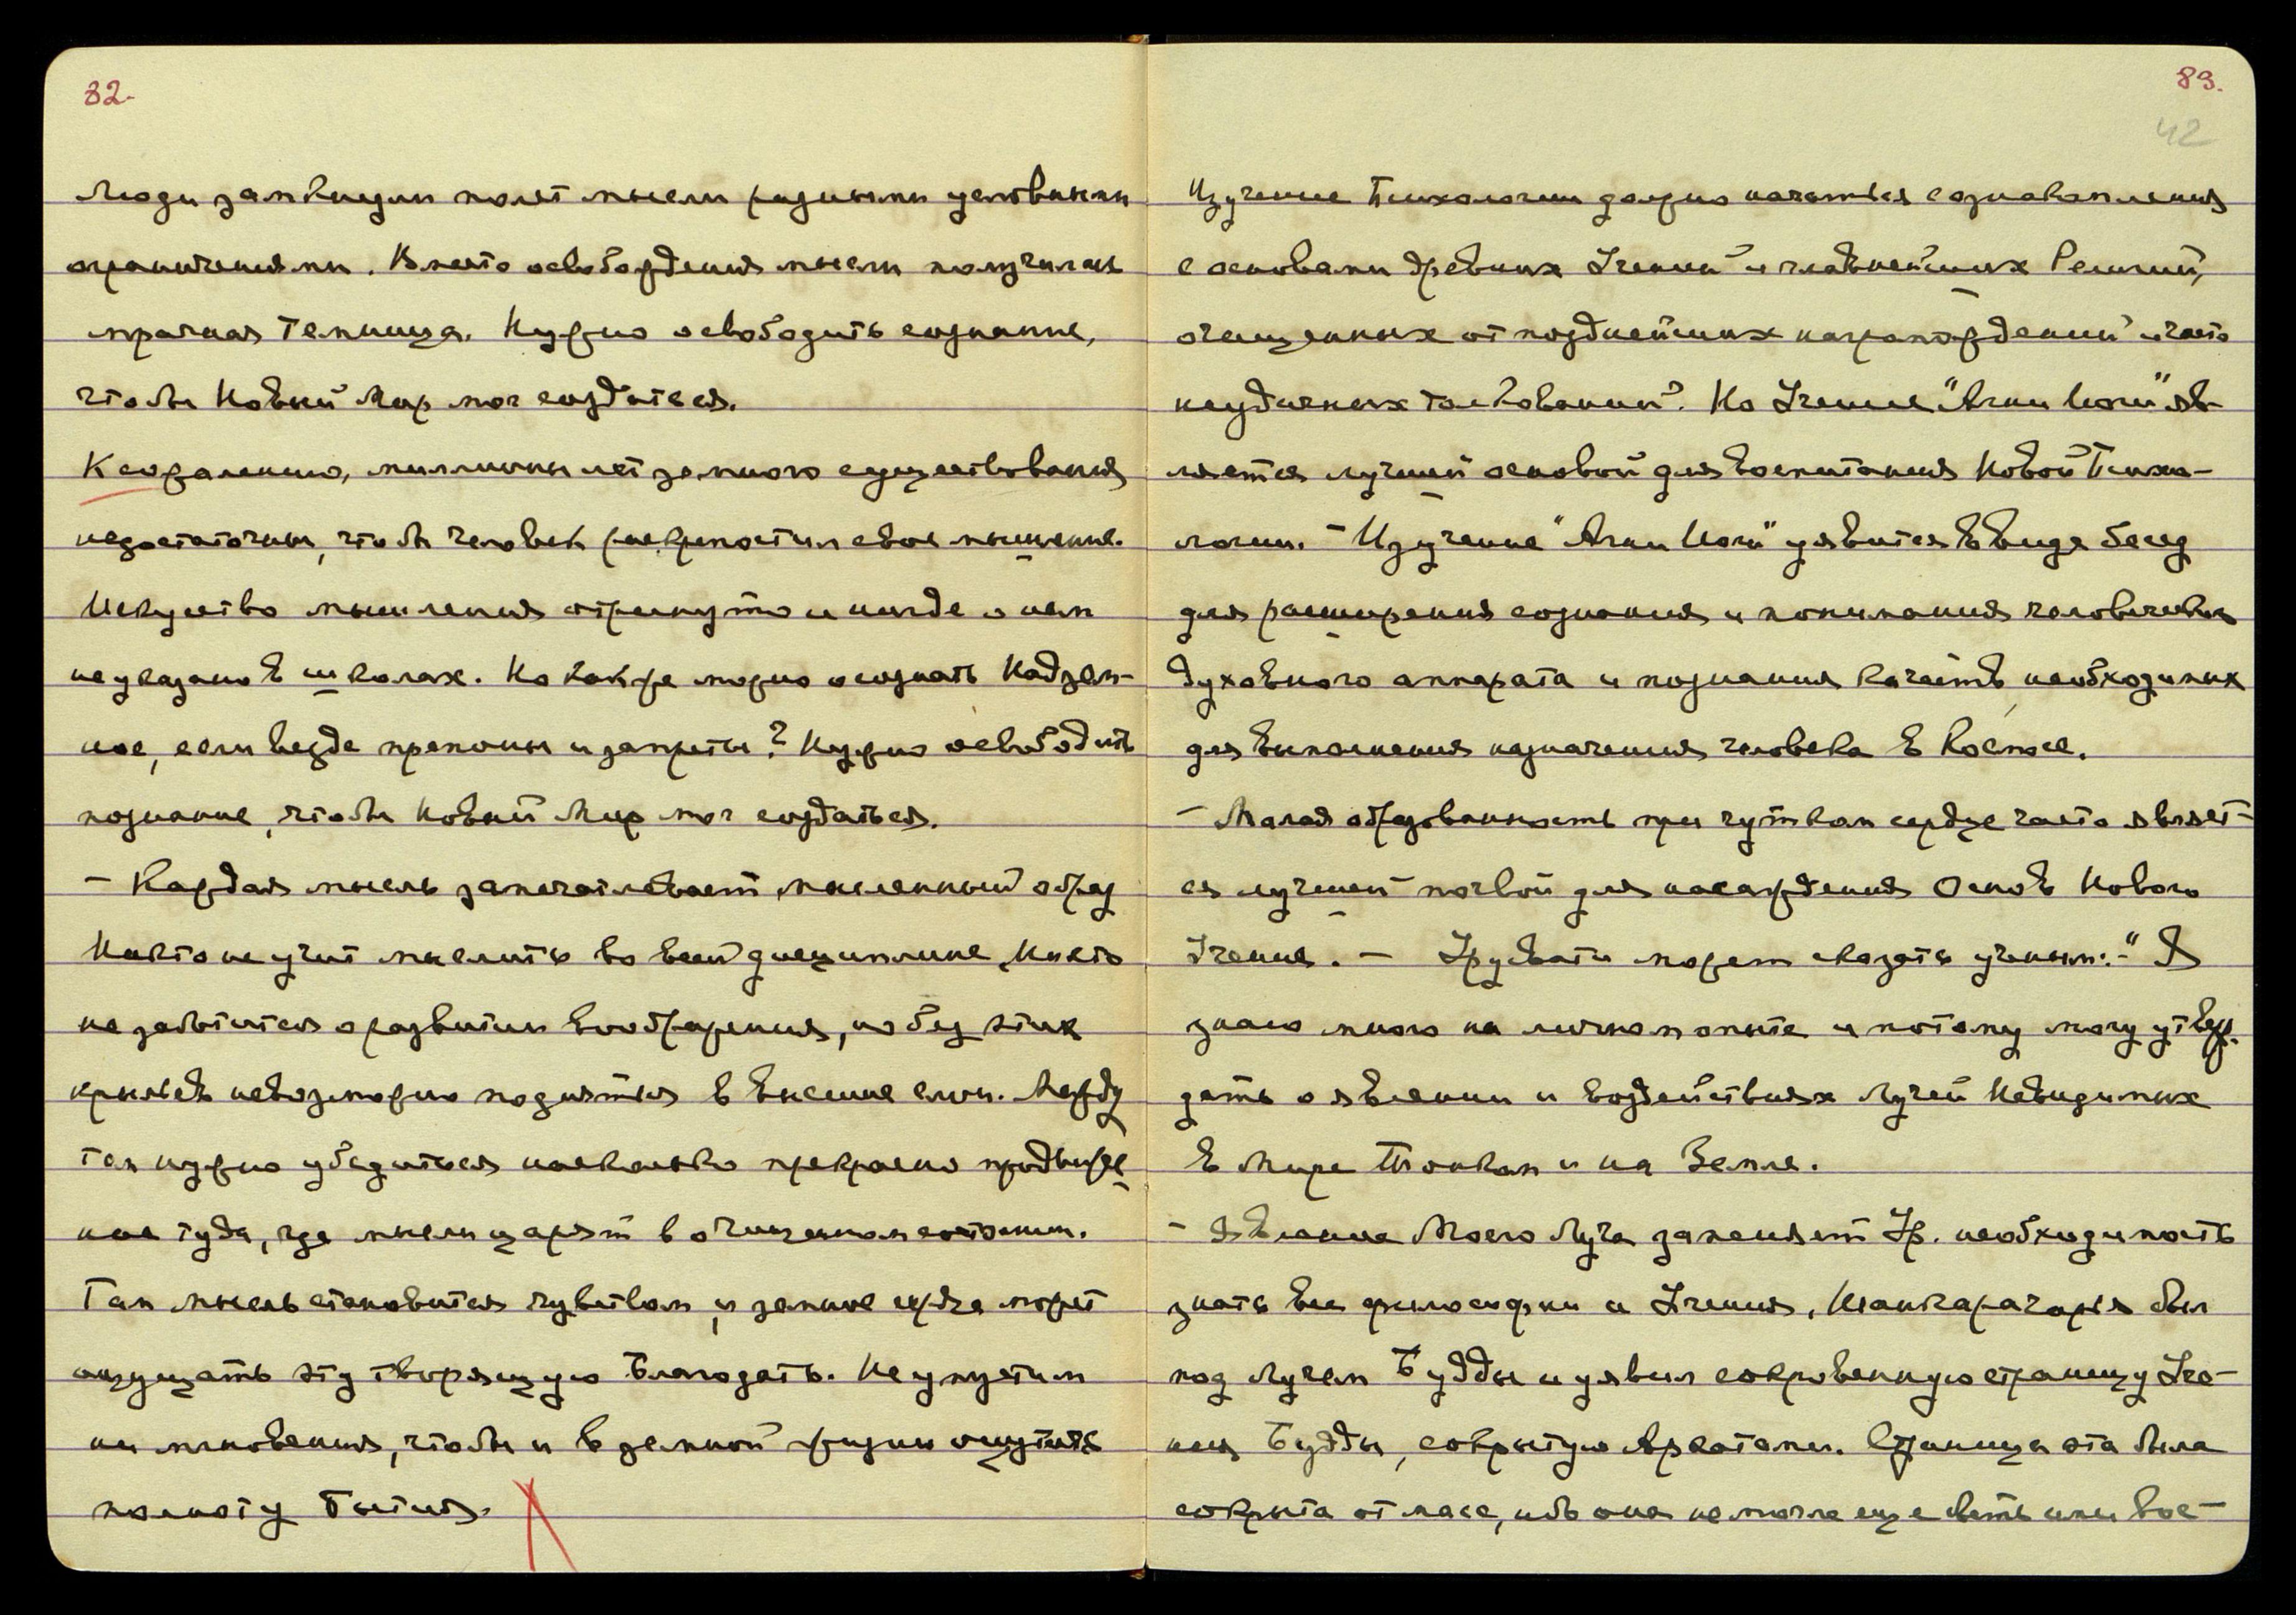 82.
Люди замкнули полет мысли разными условными
ограничениями. Вместо освобождения мысли получилась
мрачная темница. Нужно освободить сознание,
чтобы Новый Мир мог создаться.
К сожалению, миллионы лет земного существования
недостаточны, чтобы человек раскрепостил свое мышление.
Искусство мышления отринуто и нигде о нем
не указано в школах. Но как же можно осознать Надзем-
ное, если везде препоны и запреты? Нужно освободить
познание, чтобы Новый Мир мог создаться.
– Каждая мысль запечатлевает мысленный образ
Никто не учит мыслить во всей дисциплине, Никто
не заботится о развитии воображения, но без этих
крыльев невозможно подняться в высшие слои. Между
тем нужно убедиться насколько прекрасно продвиже-
ние туда, где мысли царят в очищенном состоянии.
Там мысль становится чувством, и земное сердце может
ощущать эту творящую Благодать. Не упустим
ни мгновения, чтобы и в земной жизни ощутить
полноту Бытия.
83.
42
Изучение Психологии должно начаться с ознакомления
с основами древних Учений и главнейших Религий,
очищенных от позднейших нагромождений и часто
неудачных толкований. Но Учение "Агни Йоги" яв-
ляется лучшей основой для воспитания Новой Психо-
логии. – Изучение "Агни Йоги" уявится в виде бесед
для расширения сознания и понимания человеческого
духовного аппарата и познания качеств, необходимых
для выполнения назначения человека в Космосе.
– Малая образованность при чутком сердце часто являет-
ся лучшей почвой для насаждения Основ Нового
Учения. – Урусвати может сказать ученым: – "Я
знаю много на личном опыте и потому могу утверж-
дать о явлении и воздействиях Лучей Невидимых
в Мире Тонком и на Земле.
– Явление Моего Луча заменяет Ур. необходимость
знать все философии и Учения, Шанкарачария был
под Лучем Будды и уявил сокровенную страницу Уче-
ния Будды, сокрытую Архатами. Страница эта была
сокрыта от масс, ибо она не могла еще быть ими вос-